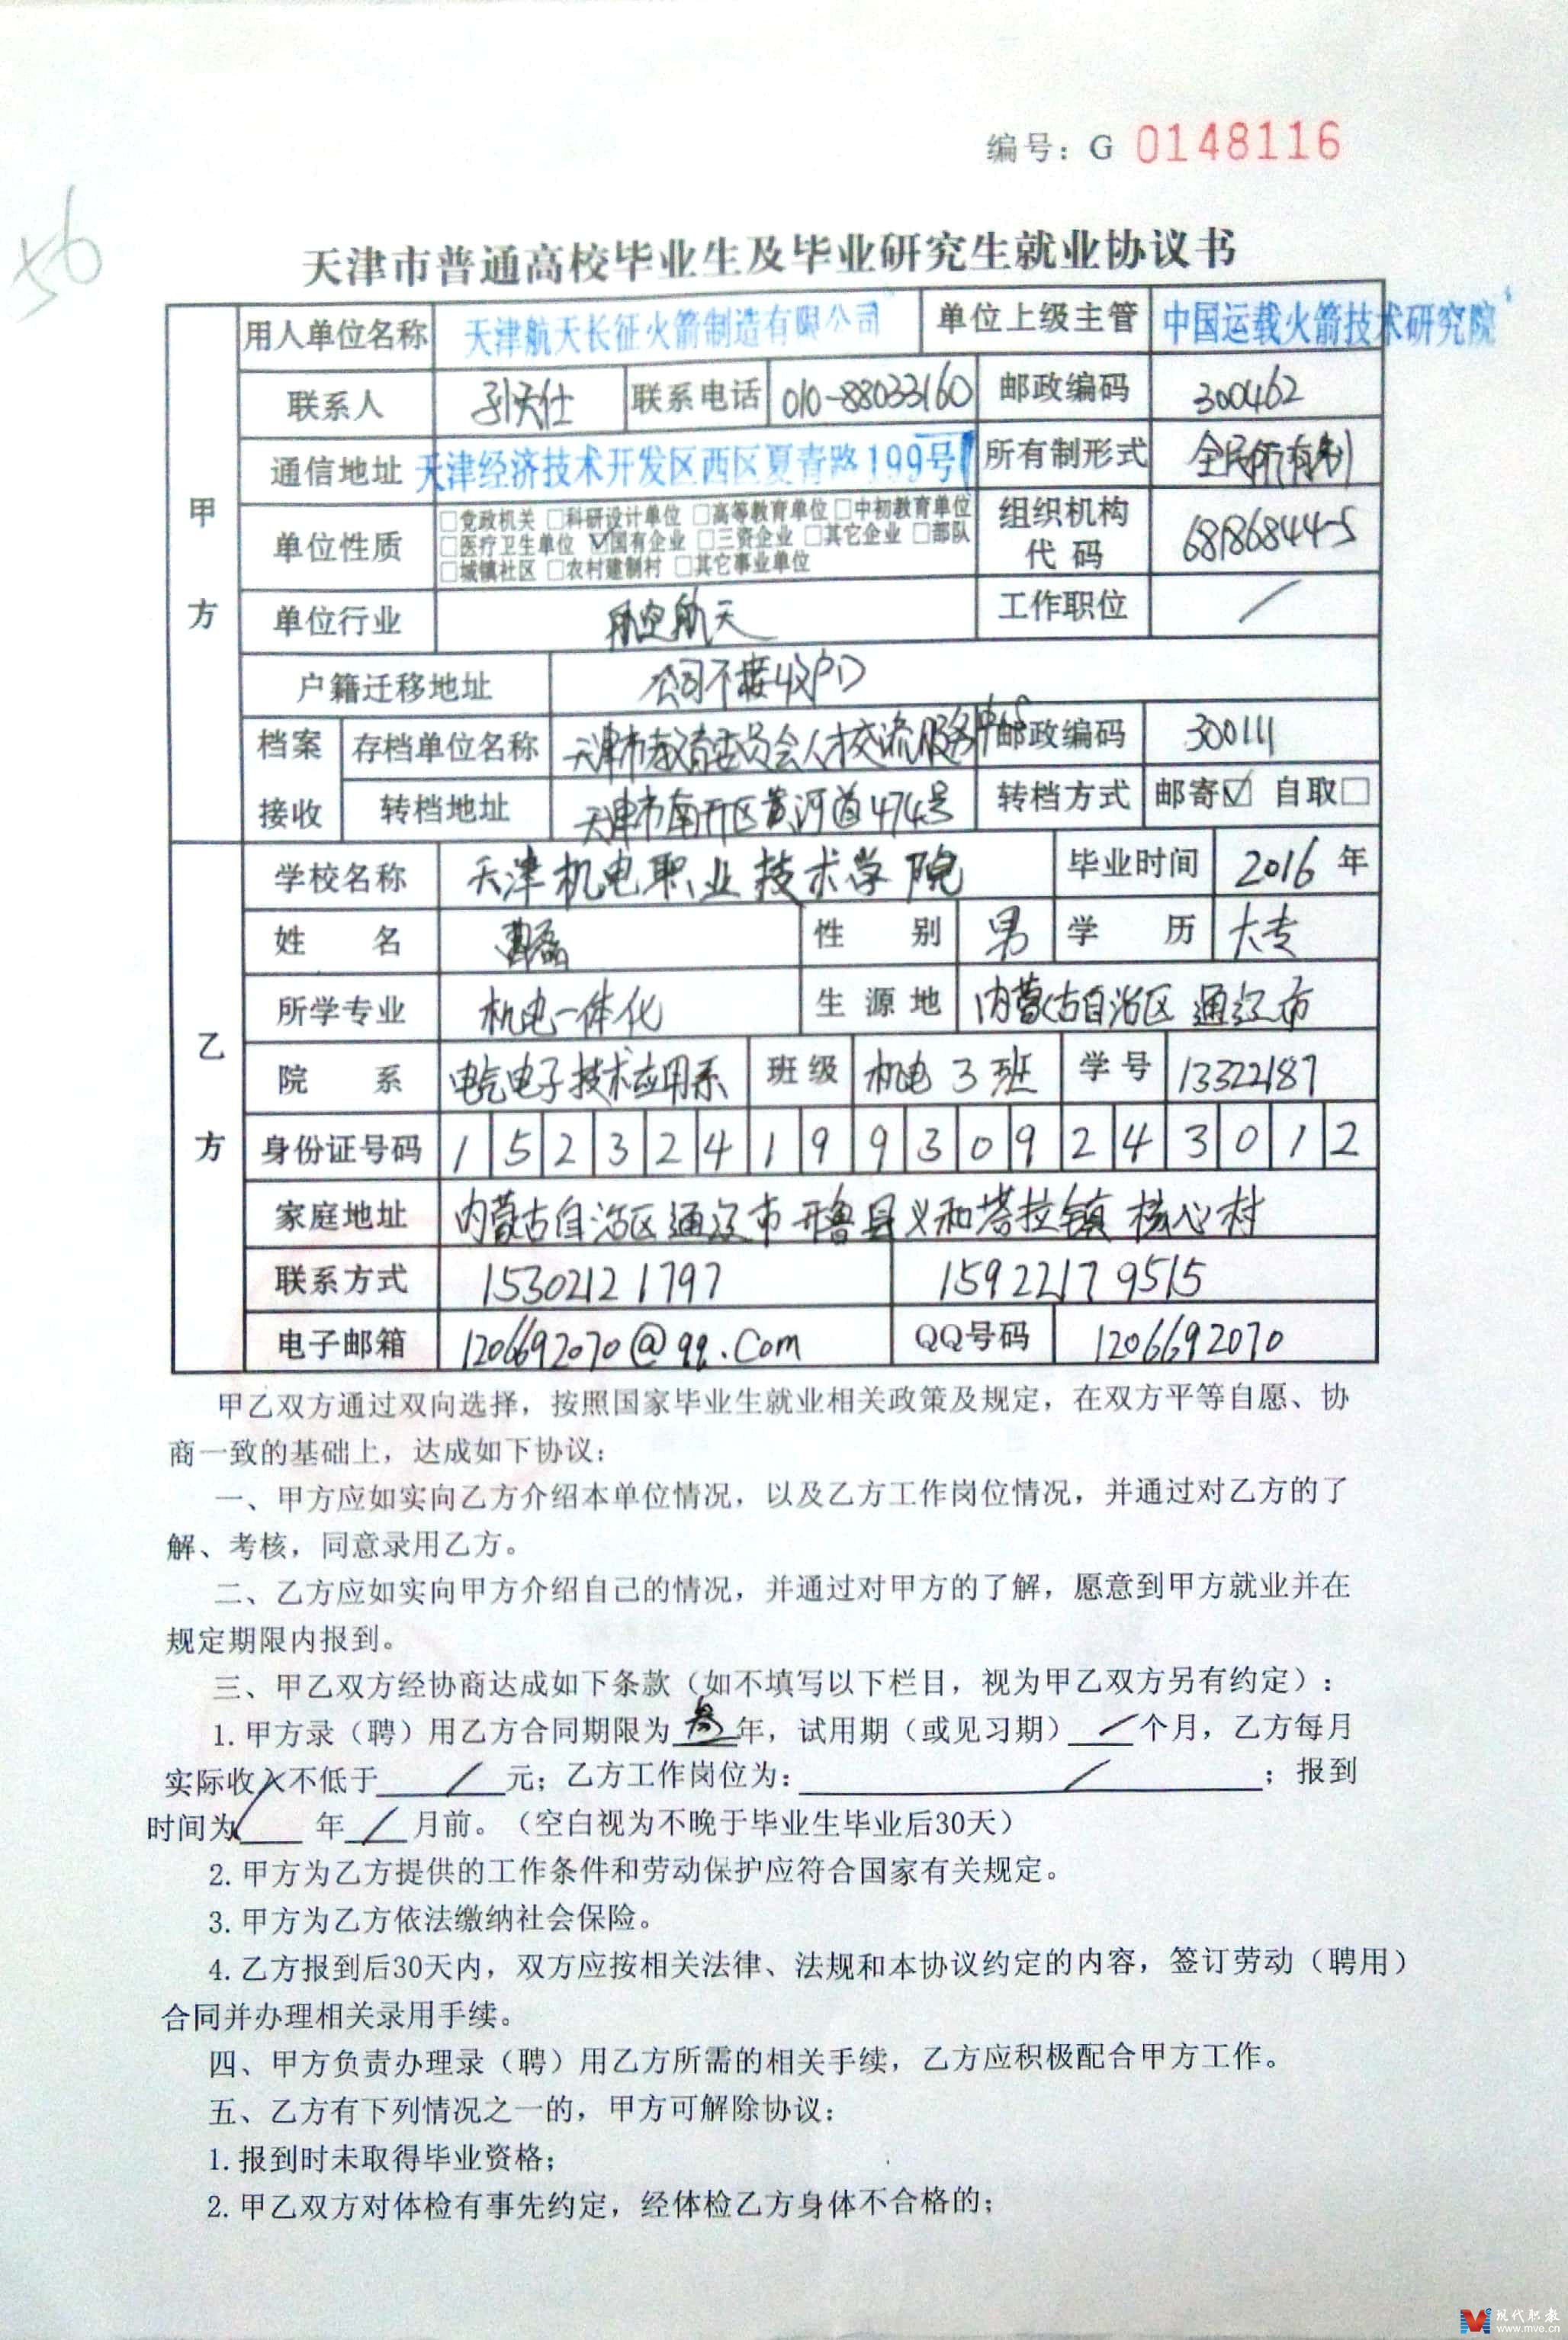 编号：G 0148116
56
天津市普通高校毕业生及毕业研究生就业协议书
甲方
用人单位名称 天津航天长征火箭制造有限公司 单位上级主管 中国运载火箭技术研究院
联系人 联系电话 010-88033160 邮政编码 300462
通信地址 天津经济技术开发区西区夏青路199号 所有制形式 全民所有制
单位性质 □党政机关 □科研设计单位 □高等教育单位 □中初教育单位
□医疗卫生单位 ☑国有企业 □三资企业 □其它企业 □部队
□城镇社区 □农村建制村 □其它事业单位
组织机构代码 68186844-5
单位行业 航空航天 工作职位 /
户籍迁移地址 公司不接收户口
档案接收 存档单位名称 天津市教育委员会人才交流服务中心 邮政编码 300111
转档地址 天津市南开区黄河道474号 转档方式 邮寄☑ 自取□
乙方
学校名称 天津机电职业技术学院 毕业时间 2016年
姓名 性别 男 学历 大专
所学专业 机电一体化 生源地 内蒙古自治区通辽市
院系 电气电子技术应用系 班级 机电3班 学号 13322187
身份证号码 152324199309243012
家庭地址 内蒙古自治区通辽市开鲁县义和塔拉镇核心村
联系方式 15302121797 15922179515
电子邮箱 1206692070@qq.com QQ号码 1206692070
甲乙双方通过双向选择，按照国家毕业生就业相关政策及规定，在双方平等自愿、协
商一致的基础上，达成如下协议：
一、甲方应如实向乙方介绍本单位情况，以及乙方工作岗位情况，并通过对乙方的了
解、考核，同意录用乙方。
二、乙方应如实向甲方介绍自己的情况，并通过对甲方的了解，愿意到甲方就业并在
规定期限内报到。
三、甲乙双方经协商达成如下条款（如不填写以下栏目，视为甲乙双方另有约定）：
1.甲方录（聘）用乙方合同期限为 叁 年，试用期（或见习期） / 个月，乙方每月
实际收入不低于 / 元；乙方工作岗位为： / ；报到
时间为 / 年 / 月前。（空白视为不晚于毕业生毕业后30天）
2.甲方为乙方提供的工作条件和劳动保护应符合国家有关规定。
3.甲方为乙方依法缴纳社会保险。
4.乙方报到后30天内，双方应按相关法律、法规和本协议约定的内容，签订劳动（聘用）
合同并办理相关录用手续。
四、甲方负责办理录（聘）用乙方所需的相关手续，乙方应积极配合甲方工作。
五、乙方有下列情况之一的，甲方可解除协议：
1.报到时未取得毕业资格；
2.甲乙双方对体检有事先约定，经体检乙方身体不合格的；
现代职教
www.mve.cn